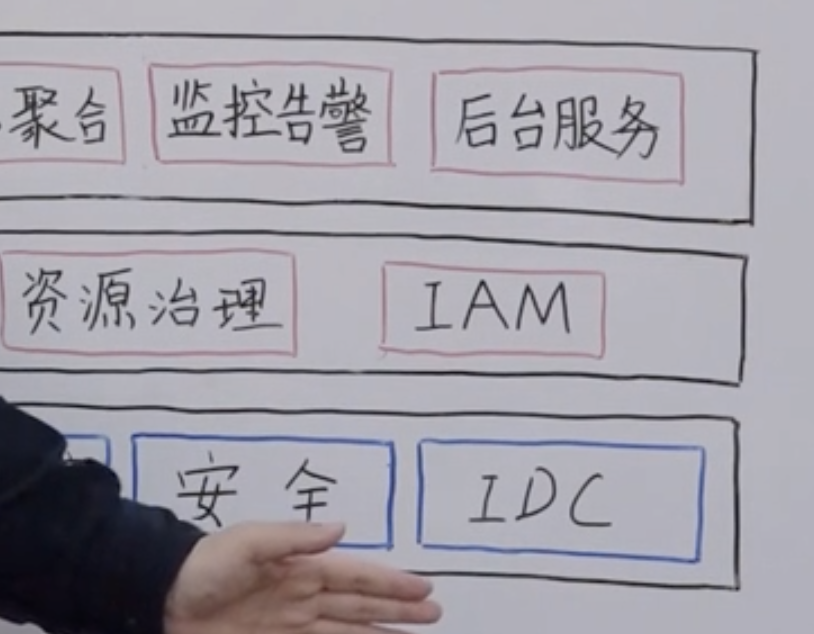 聚合 监控告警 后台服务
资源治理 IAM
安全 IDC